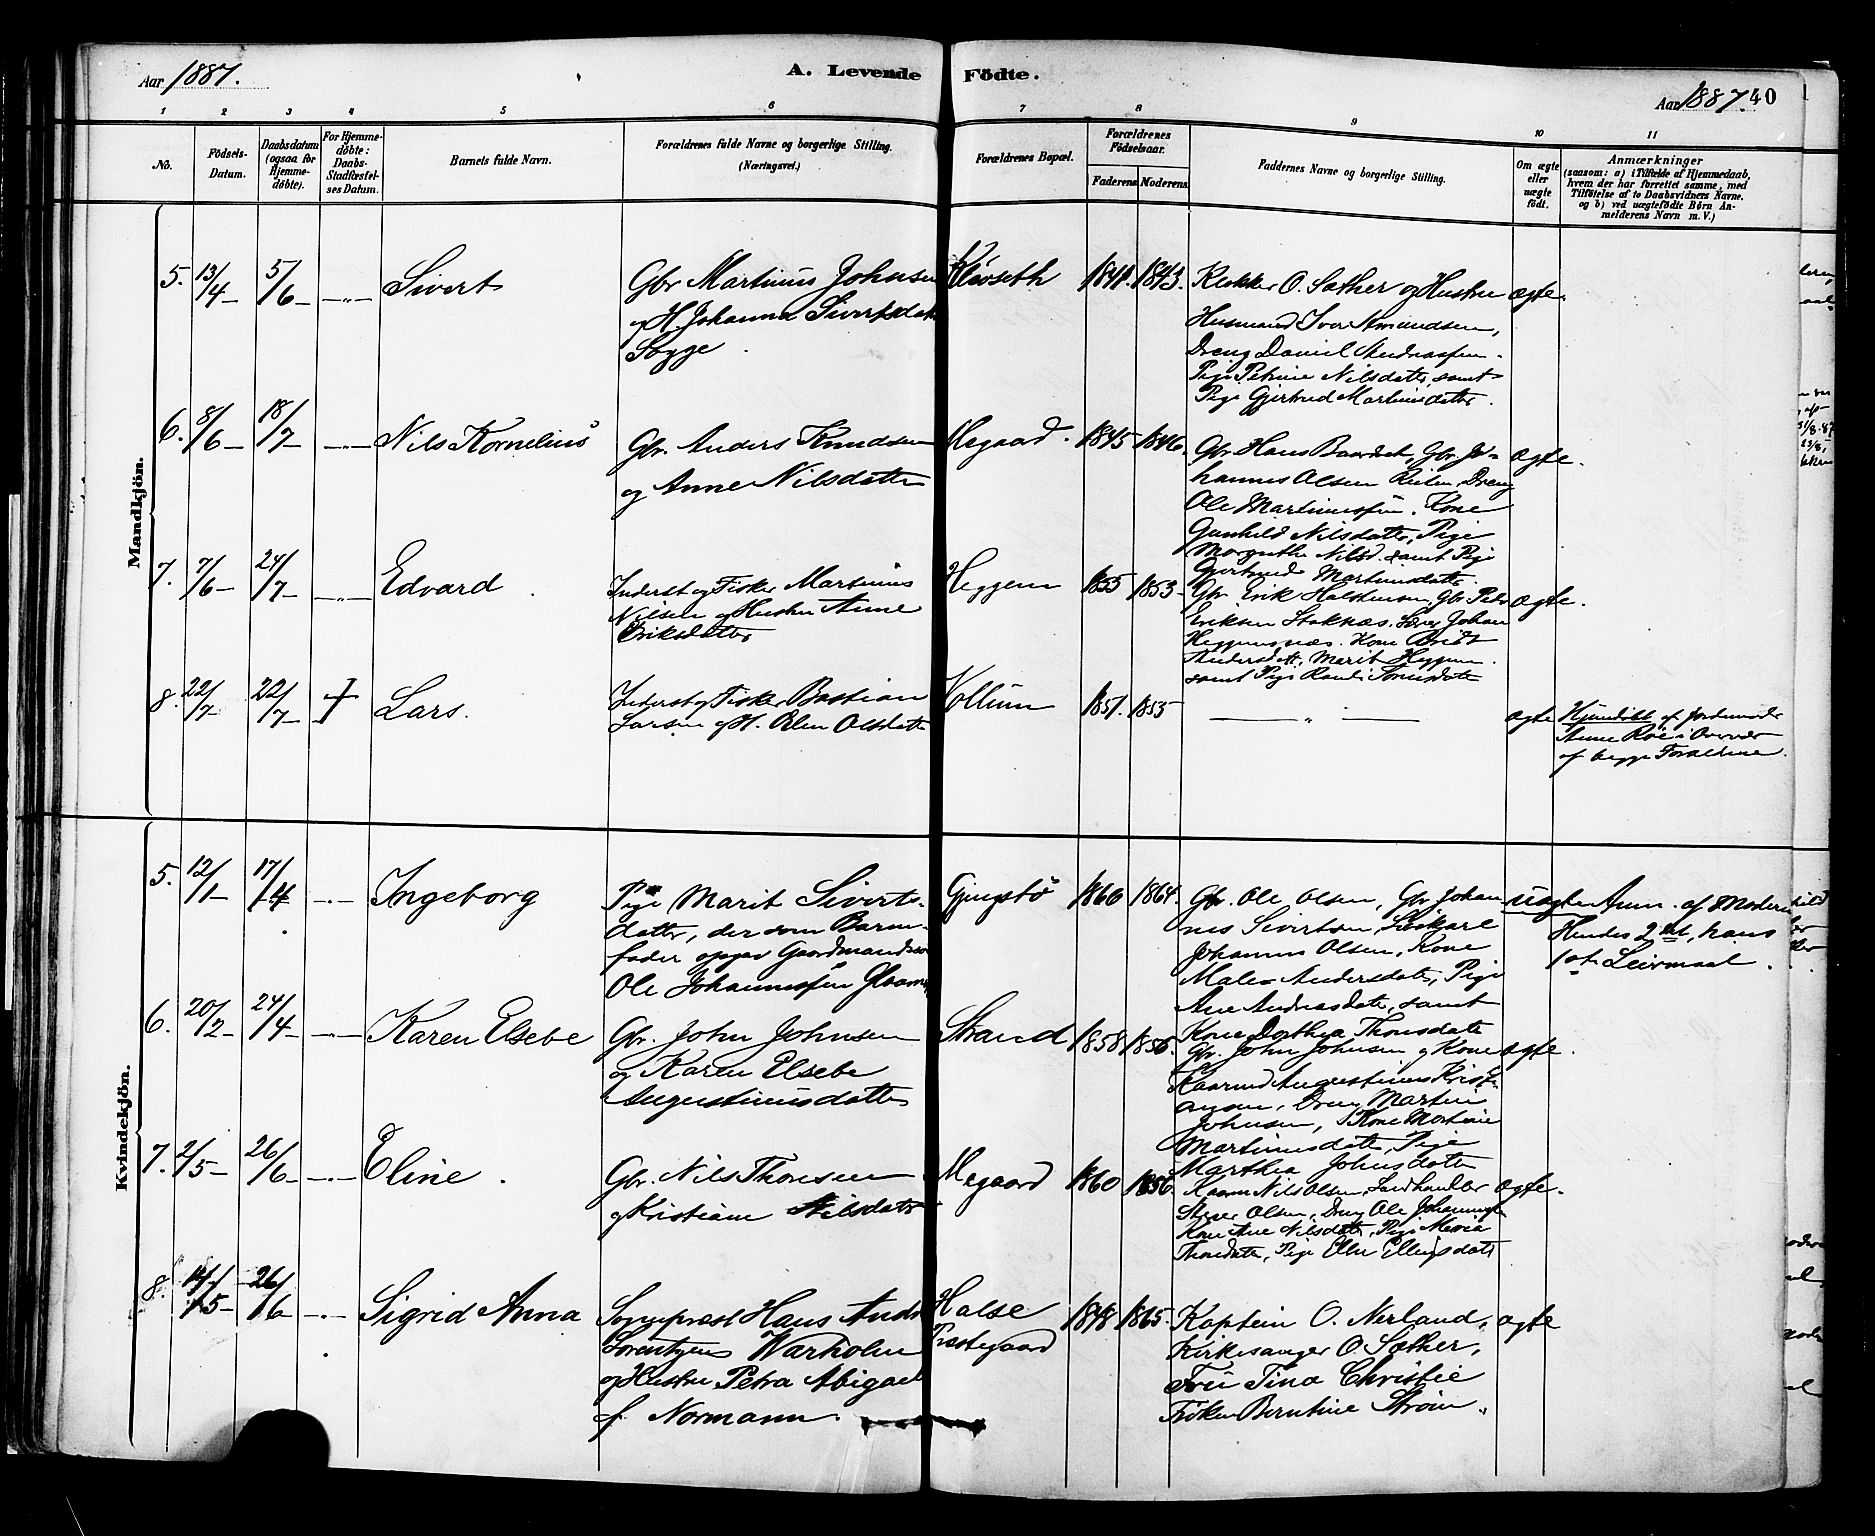 Aar 1887.
A. Levende Födte.
Aar 1887. 40
1 2 3 4 5 6 7 8 9 10 11
No.
Födsels-Datum.
Daabsdatum (ogsaa for Hjemme-döbte).
For Hjemme-döbte: Daabs-Stadfæstel-ses Datum.
Barnets fulde Navn.
Forældrenes fulde Navne og borgerlige Stilling. (Næringsvei.)
Forældrenes Bopæl.
Forældrenes Födselsaar.
Faderens Moderens
Faddernes Navne og borgerlige Stilling.
Om ægte eller uægte födt.
Anmærkninger
(saasom: a) i Tilfælde af Hjemmedaab,
hvem der har forrettet samme, med
Tilföielse af to Daabsvidners Navne.
og b) ved uægtefödte Börn An-
melderens Navn m. V.)
Mandkjön.
5. 13/4 5/6 Sivert
Gbr Martinus Johnsen
og H. Johanna Sivertsdatt
Sogge.
1841. 1843.
Klokker O. Sæther og Hustru ægte.
Husmand Iver Amundsen,
Dreng Daniel Andreassen.
Pige Petrine Nilsdatter, samt
Pige Gjertrud Martinsdatter.
6. 8/6 18/7 Nils Kornelius
Gbr. Anders Knudsen
og Anne Nilsdatter
Megaard. 1845 1846.
Gbr. Hans Baardset, Gbr. Jo=
hannes Olsen Reiten, Dreng
Ole Martinussen. Kone
Gunhild Nilsdatter, Pige
Margrethe Nilsd. samt Pige
Gjertrud Martinusdatter.
ægte.
7. 7/6 24/7 Edvard.
Inderst og Fisker Martinus
Nilsen og Hustru Anne
Eriksdatter
Heggem 1855 1853
Gbr. Erik Halstensen, Gbr Peder
Eriksen Stoknæs, Johan
Heggemsnæs. Kone Beret
Andersdatt, Marit Heggem.
samt Pige Randi
ægte.
8. 22/7 22/7 Lars.
Inderst og Fisker Bastian
Larsen og H. Elen Olsdatter
Vollum 1851. 1855
ægte
Hjemdöbt af Jordemoder
Anne Röe i Overvær
af begge Forældrene.
Kvindekjön.
5. 12/1 17/4 Ingeborg
Pige Marit Siverts-
datter, der som Barne-
fader opgav Gaardmandssøn
Ole Johannessen Glaamen
Gjengstö 1866 1864.
Gbr. Ole Olsen, Gbr. Johan
nes Sivertsen,
Johannes Olsen, Kone
Malene Andersdatt, Pige
Ane Andreasdatt, samt
Kone Dorthea Thoresdatt
uægte
Anm. af Moderen
Hendes 2det, hans
1ste Leiermaal.
6. 20/2 24/4 Karen Elsebe
Gbr. John Johnsen
og Karen Elsebe
Augustinusdatter
Strand 1858 1856.
Gbr. John Johnsen og Kone
Augustinus Kristi
ansen, Dreng Martin
Johnsen, Kone Martine
Martinusdatter, Pige
Marthea Johnsdatter
ægte.
7. 2/5 26/6 Eline.
Gbr. Nils Thoresen
og Kristiane Nilsdatter
Megaard 1860 1856.
Nils Olsen, Landhandler
Olsen, Dreng Ole Johannessen
Kone Ane Nilsdatt, Pige Maria
Thoresdatt, Pige Ellen Ellingsdatt
ægte.
8. 14/5 26/6 Sigrid Anna
Sogneprest Hans Andr.
Lorentzen Warholm
og Hustru Petra Abigael
f. Normann.
Halse
Præstegaard
1848 1865.
Kaptein O. Nerland,
Kirkesanger O. Sæther,
Fru Tina Christie
Frøken Berntine Strøm.
ægte